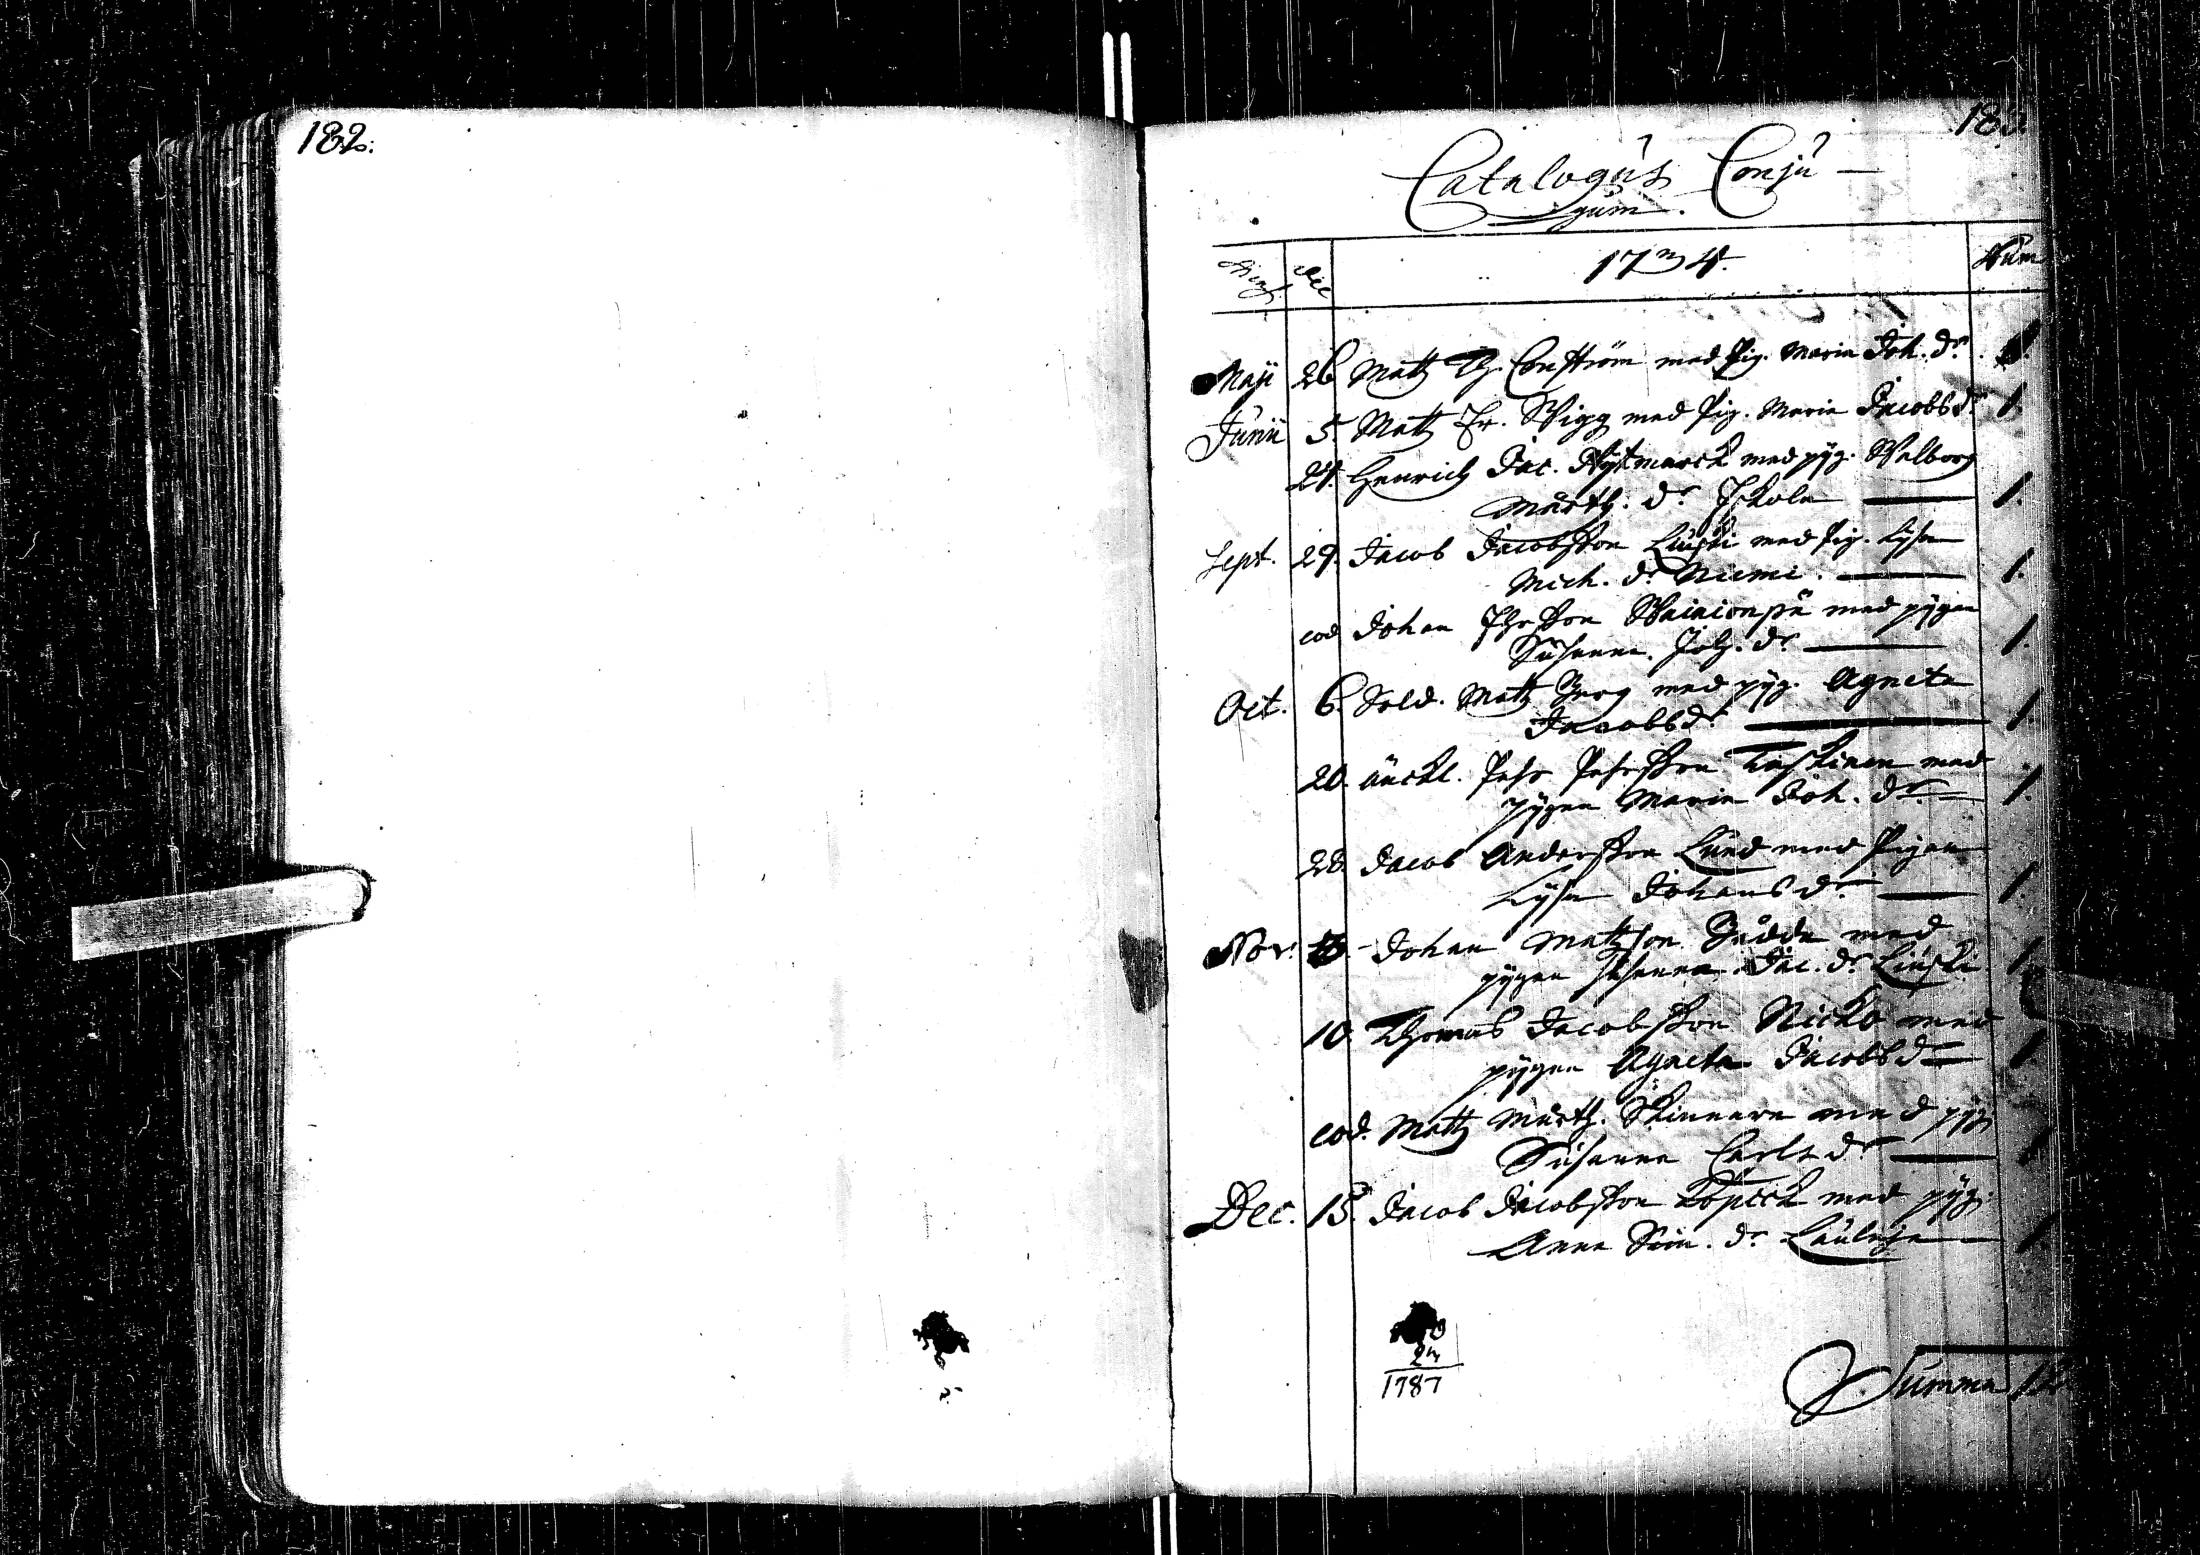 182.
Catalogus Conju-
gum.
Mens. Die 1734. Num
Maji 26 Matts Th. Conström med Pig. Maria Joh. dr. 1.
Junii 5. Matts Er. Wigg med Pig. Maria Jacobs dr 1.
24. Henrich Jac. med pyg. Walborg
Mårth. dr Iskola 1.
Sept. 29. Jacob Jacobsson Liuski med Pig. Lysa
Mich. dr Niemi. 1.
eod Johan Ersson Wainionpä med pygan
Susanna Joh. dr 1.
Oct. 6. Sold. Matts Berg med pyg. Agneta
Jacobs dr 1.
20. änckl. Pehr Pehrsson Kaskinen med
pygan Maria Joh. dr 1.
28. Jacob Andersson Lund med Pigan
Lysa Johans dr 1.
Nov. Johan Matsson Sadda med
pygan Susanna Jac. dr Liuski 1.
10. Thomas Jacobsson Nicko med
pygan Agneta Jacobs dr 1.
eod. Matts Mårth. Skinnare med pyg.
Susanna Carls dr 1
Dec. 15. Jacob Jacobsson Köpick med pyg.
Anna Sim. dr Laulaja 1.
1787
Summa